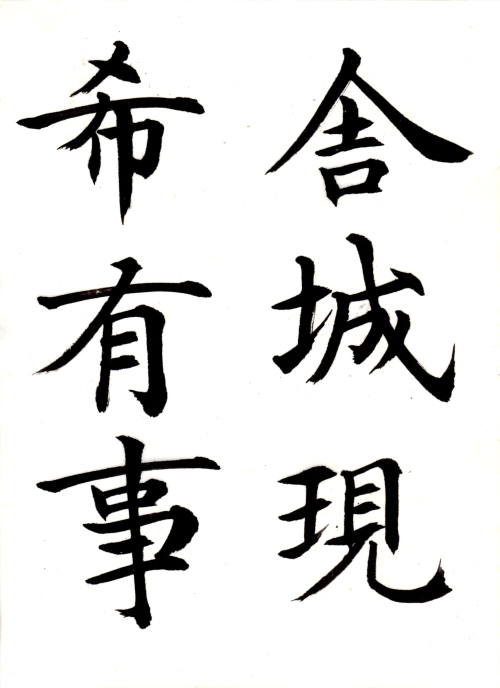 舎城現
希有事